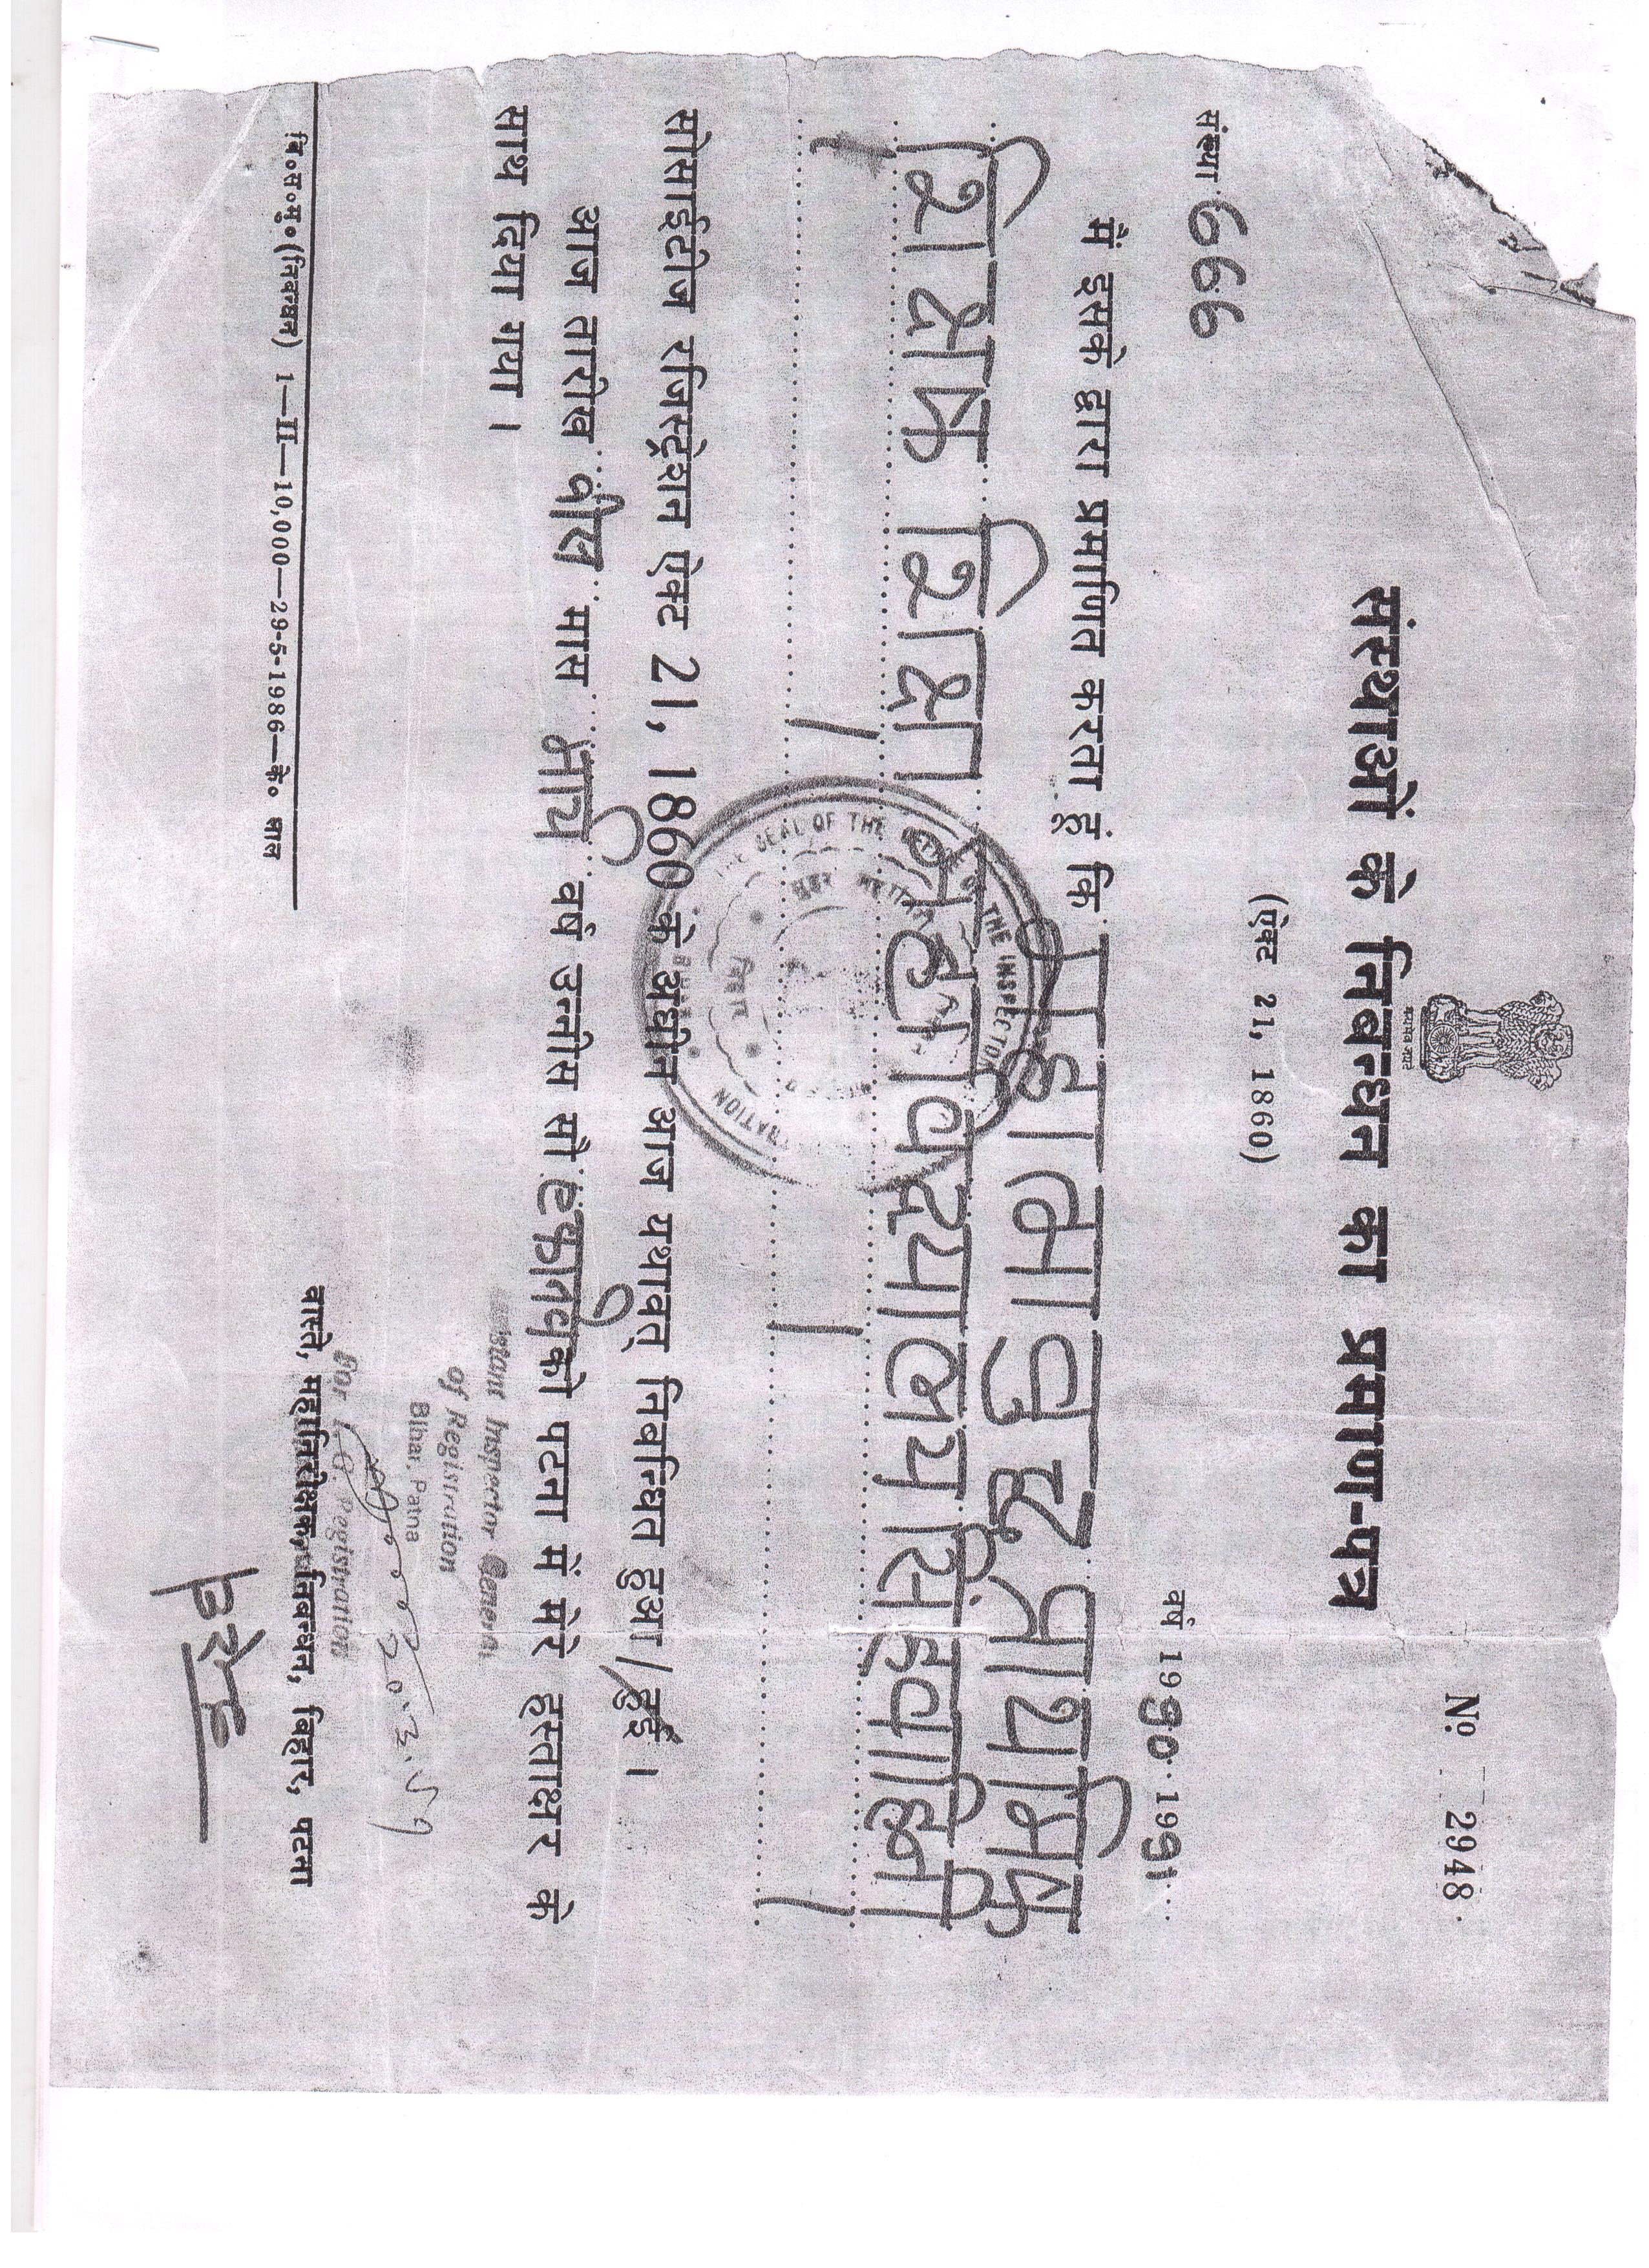 No 2948
सत्यमेव जयते
संस्थाओं के निबन्धन का प्रमाण-पत्र
(ऐक्ट 21, 1860)
संख्या 666 वर्ष 1990-1991
मैं इसके द्वारा प्रमाणित करता हूं कि महात्मा बुद्ध प्राथमिक
शिक्षक शिक्षा महाविद्यालय सिंहवाहिनी
सोसाईटीज रजिस्ट्रेशन ऐक्ट 21, 1860 के अधीन आज यथावत् निबन्धित हुआ/हुई ।
आज तारीख बीस मास मार्च वर्ष उन्नीस सौ एकानवे को पटना में मेरे हस्ताक्षर के
साथ दिया गया ।
Assistant Inspector General
of Registration
Bihar, Patna
20.3.91
For I.G. Registration
वास्ते, महानिरीक्षक, निबन्धन, बिहार, पटना
बि०स०मु०(निबन्धन) 1—II—10,000—29-5-1986—के० लाल
THE SEAL OF THE
THE INSPECTOR